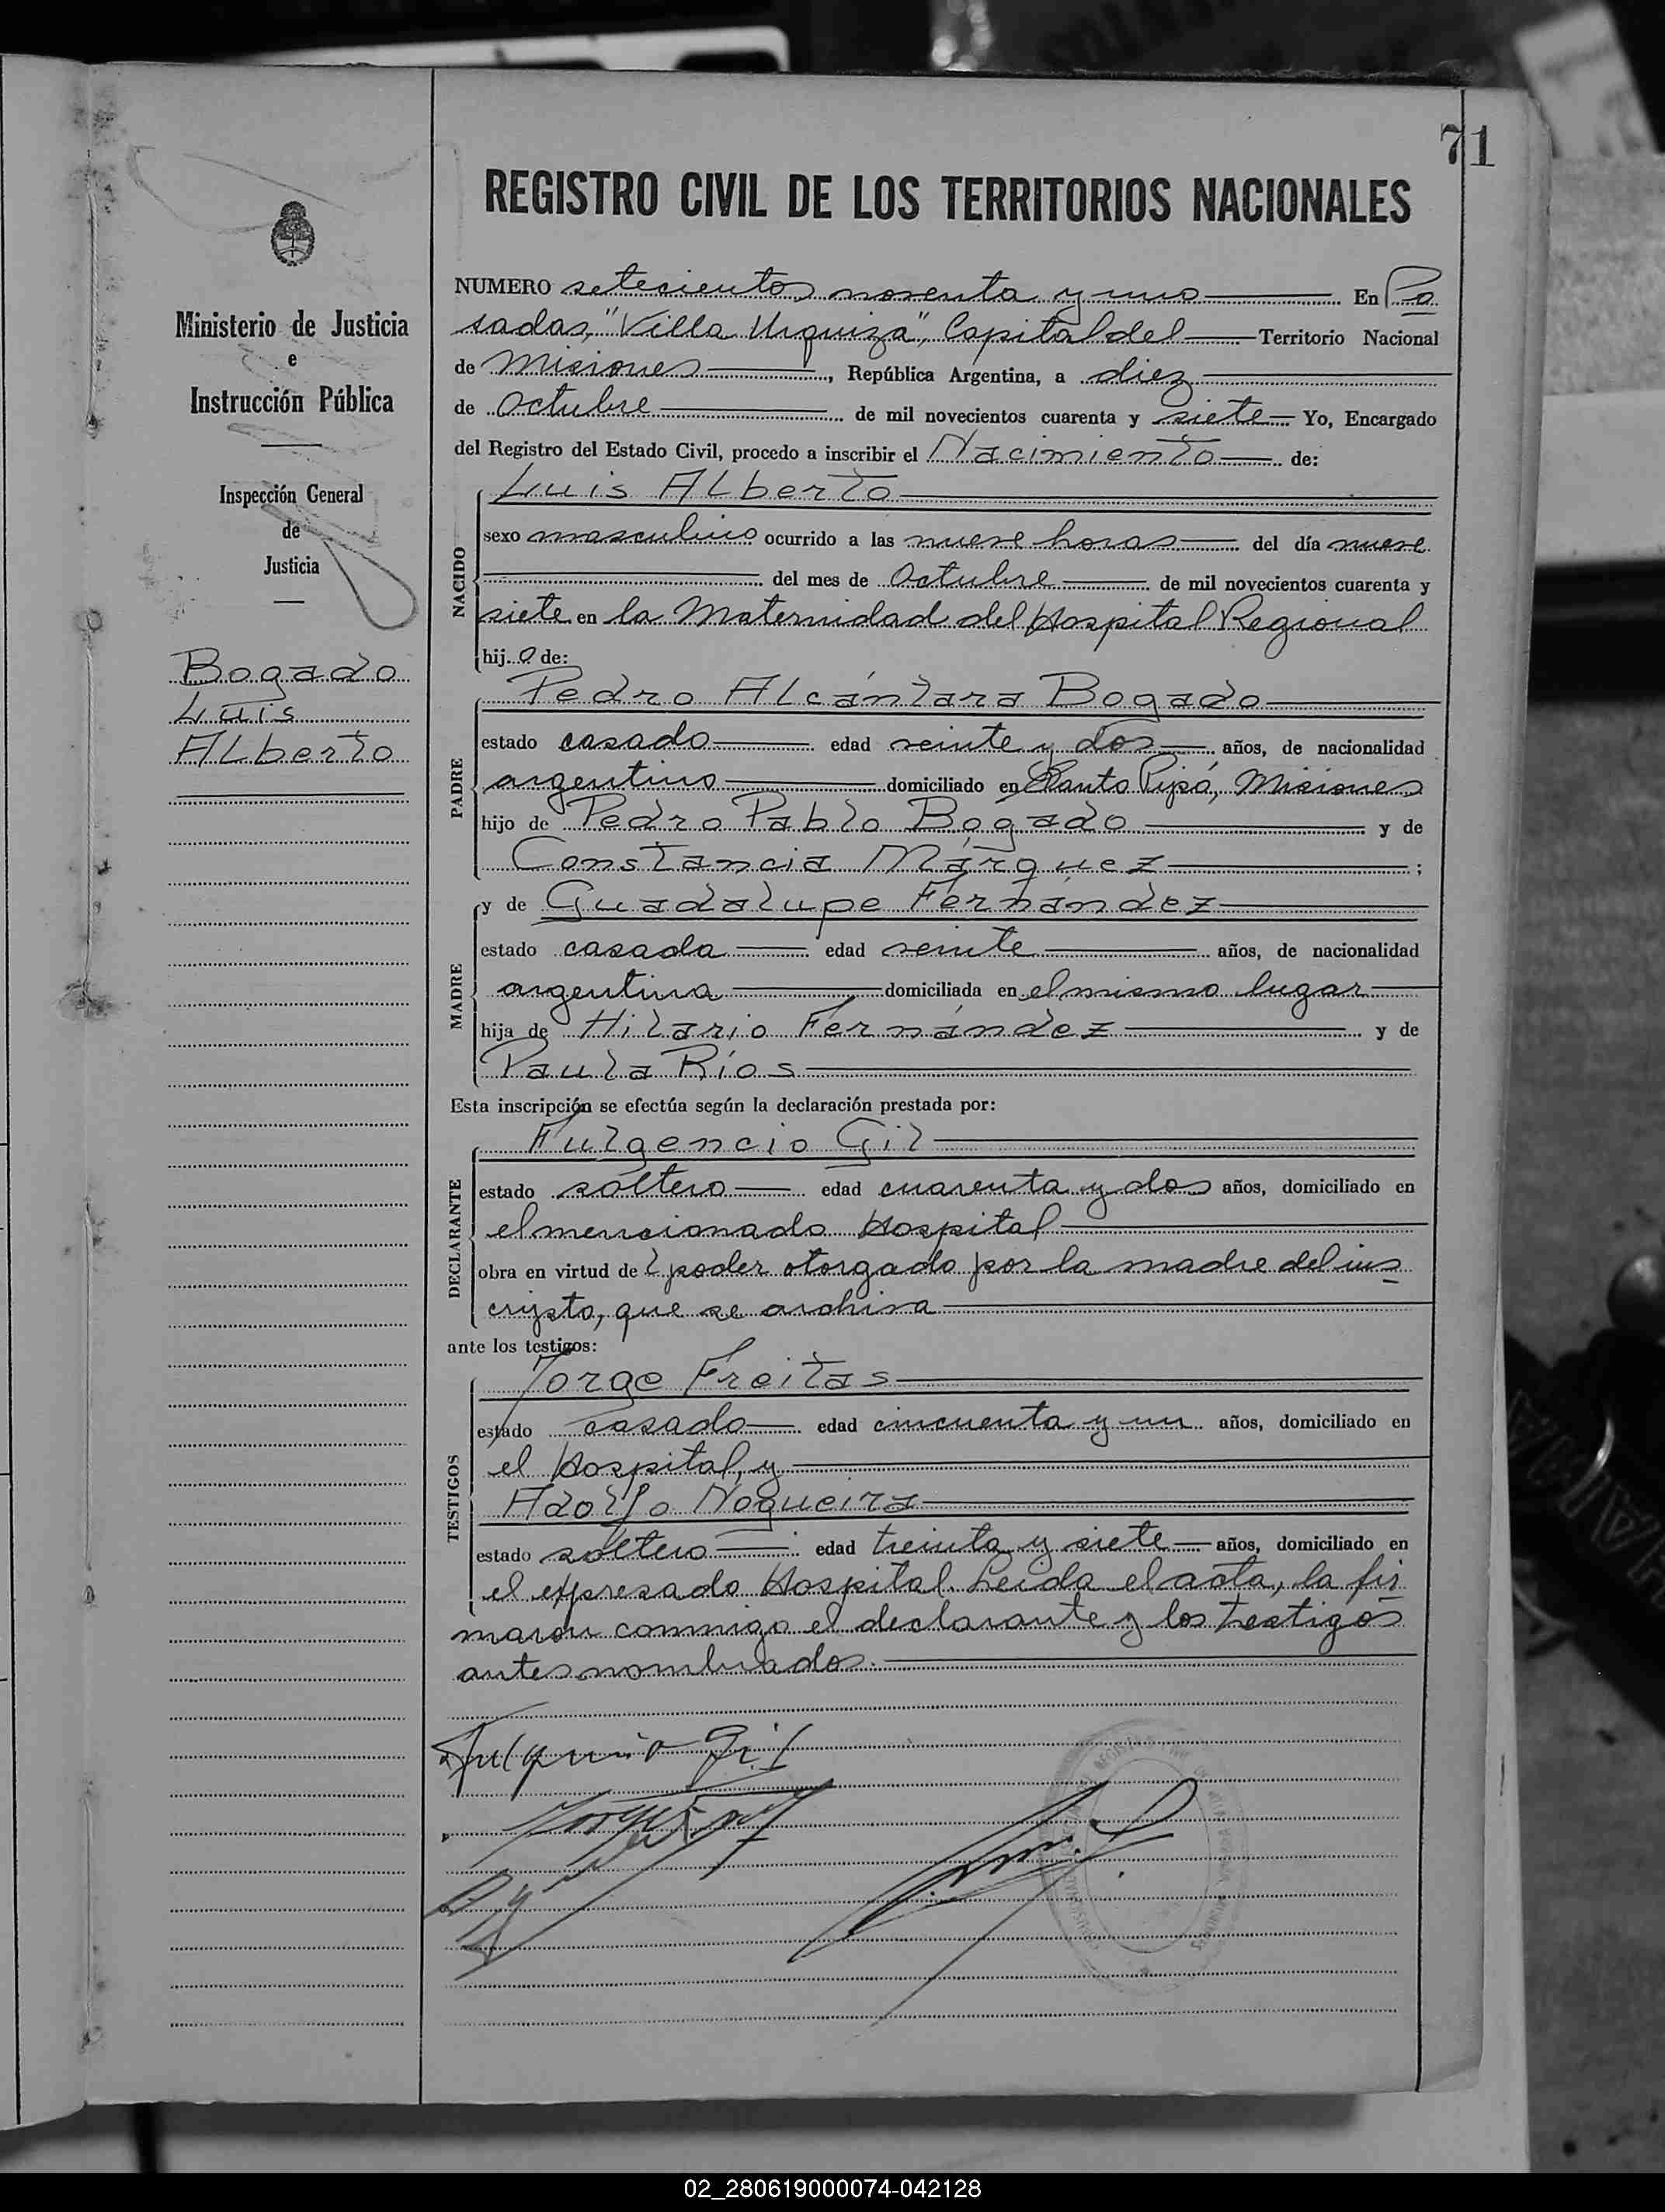 71
REGISTRO CIVIL DE LOS TERRITORIOS NACIONALES
Ministerio de Justicia
e
Instrucción Pública
Inspección General
de
Justicia
Bogado
Luis
Alberto
NUMERO setecientos noventa y uno En Po
sadas, "Villa Urquiza", Capital del Territorio Nacional
de Misiones, República Argentina, a diez
de Octubre de mil novecientos cuarenta y siete Yo, Encargado
del Registro del Estado Civil, procedo a inscribir el Nacimiento de:
NACIDO
Luis Alberto
sexo masculino ocurrido a las nueve horas del día nueve
del mes de Octubre de mil novecientos cuarenta y
siete en la Maternidad del Hospital Regional
hijo de:
PADRE
Pedro Alcántara Bogado
estado casado edad veinte y dos años, de nacionalidad
argentino domiciliado en Santo Pipó, Misiones
hijo de Pedro Pablo Bogado y de
Constancia Márquez;
MADRE
y de Guadalupe Fernández
estado casada edad veinte años, de nacionalidad
argentina domiciliada en el mismo lugar
hija de Hilario Fernández y de
Paula Ríos
Esta inscripción se efectúa según la declaración prestada por:
DECLARANTE
Fulgencio Gil
estado soltero edad cuarenta y dos años, domiciliado en
el mencionado Hospital
obra en virtud del poder otorgado por la madre del ins
cripto, que se archiva
ante los testigos:
TESTIGOS
Jorge Freitas
estado casado edad cincuenta y un años, domiciliado en
el Hospital, y
Adolfo Nogueira
estado soltero edad treinta y siete años, domiciliado en
el expresado Hospital. Leída el acta, la fir
maron conmigo el declarante y los testigos
antes nombrados.
Fulgencio Gil
02_280619000074-042128